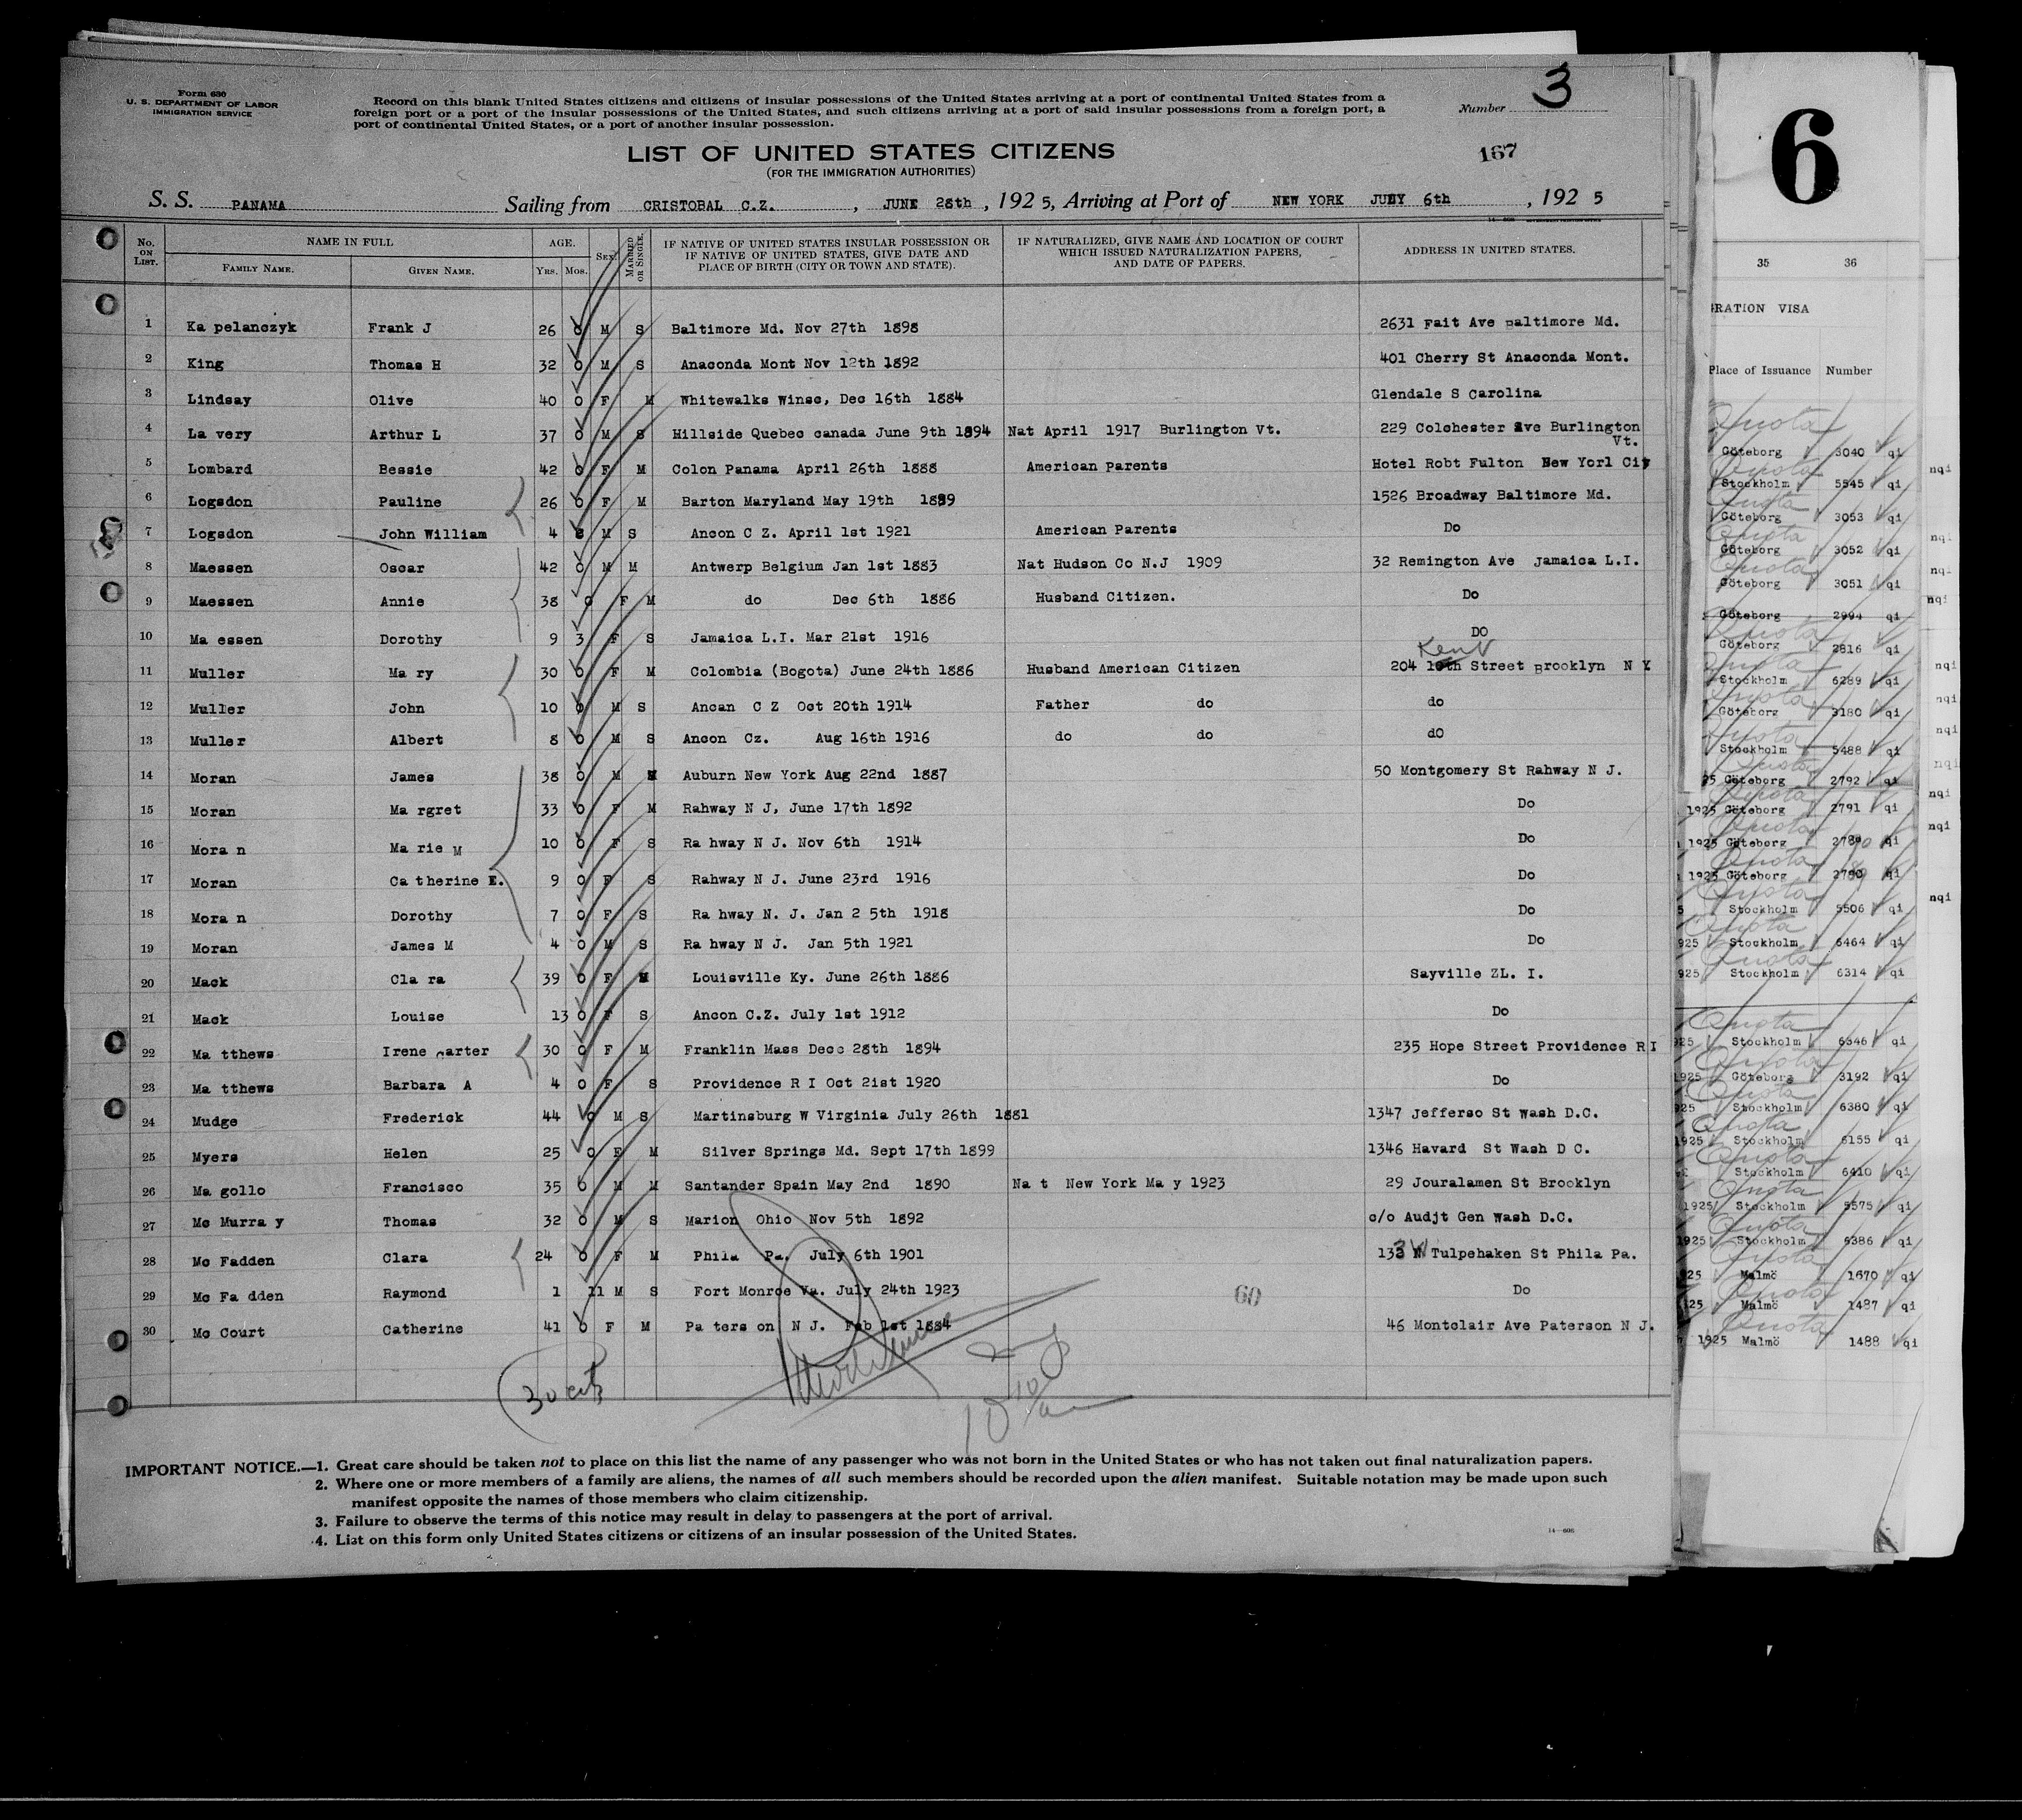 Form 630
U. S. DEPARTMENT OF LABOR
IMMIGRATION SERVICE
Record on this blank United States citizens and citizens of insular possessions of the United States arriving at a port of continental United States from a
foreign port or a port of the insular possessions of the United States, and such citizens arriving at a port of said insular possessions from a foreign port, a
port of continental United States, or a port of another insular possession.
Number 3
167
LIST OF UNITED STATES CITIZENS
(FOR THE IMMIGRATION AUTHORITIES)
S. S. PANAMA Sailing from CRISTOBAL C.Z. , JUNE 28th , 192 5, Arriving at Port of NEW YORK JULY 6th , 192 5
No. ON LIST. NAME IN FULL FAMILY NAME. GIVEN NAME. AGE. YRS. MOS. SEX MARRIED OR SINGLE. IF NATIVE OF UNITED STATES INSULAR POSSESSION OR IF NATIVE OF UNITED STATES, GIVE DATE AND PLACE OF BIRTH (CITY OR TOWN AND STATE). IF NATURALIZED, GIVE NAME AND LOCATION OF COURT WHICH ISSUED NATURALIZATION PAPERS, AND DATE OF PAPERS. ADDRESS IN UNITED STATES.
1 Ka pelanczyk Frank J 26 0 M S Baltimore Md. Nov 27th 1898 2631 Fait Ave Baltimore Md.
2 King Thomas H 32 0 M S Anaconda Mont Nov 12th 1892 401 Cherry St Anaconda Mont.
3 Lindsay Olive 40 0 F M Whitewalks Winsc, Dec 16th 1884 Glendale S Carolina
4 La very Arthur L 37 0 M S Hillside Quebec canada June 9th 1894 Nat April 1917 Burlington Vt. 229 Colchester Ave Burlington Vt.
5 Lombard Bessie 42 0 F M Colon Panama April 26th 1888 American Parents Hotel Robt Fulton New Yorl City
6 Logsdon Pauline 26 0 F M Barton Maryland May 19th 1899 1526 Broadway Baltimore Md.
7 Logsdon John William 4 M S Ancon C Z. April 1st 1921 American Parents Do
8 Maessen Oscar 42 0 M M Antwerp Belgium Jan 1st 1883 Nat Hudson Co N.J 1909 32 Remington Ave Jamaica L.I.
9 Maessen Annie 38 0 F M do Dec 6th 1886 Husband Citizen. Do
10 Ma essen Dorothy 9 3 F S Jamaica L.I. Mar 21st 1916 DO
11 Muller Ma ry 30 0 F M Colombia (Bogota) June 24th 1886 Husband American Citizen 204 10th Kent Street Brooklyn N Y
12 Muller John 10 0 M S Ancan C Z Oct 20th 1914 Father do do
13 Muller Albert 8 0 M S Ancon Cz. Aug 16th 1916 do do dO
14 Moran James 38 0 M M Auburn New York Aug 22nd 1887 50 Montgomery St Rahway N J.
15 Moran Ma rgret 33 0 F M Rahway N J, June 17th 1892 Do
16 Mora n Ma rie M 10 0 F S Ra hway N J. Nov 6th 1914 Do
17 Moran Ca therine E. 9 0 F S Rahway N J. June 23rd 1916 Do
18 Mora n Dorothy 7 0 F S Ra hway N. J. Jan 2 5th 1918 Do
19 Moran James M 4 0 M S Ra hway N J. Jan 5th 1921 Do
20 Mack Cla ra 39 0 F M Louisville Ky. June 26th 1886 Sayville ZL. I.
21 Mack Louise 13 0 F S Ancon C.Z. July 1st 1912 Do
22 Ma tthews Irene Carter 30 0 F M Franklin Mass Dec 28th 1894 235 Hope Street Providence R I
23 Ma tthews Barbara A 4 0 F S Providence R I Oct 21st 1920 Do
24 Mudge Frederick 44 0 M S Martinsburg W Virginia July 26th 1881 1347 Jefferso St Wash D.C.
25 Myers Helen 25 0 F M Silver Springs Md. Sept 17th 1899 1346 Havard St Wash D C.
26 Ma gollo Francisco 35 0 M M Santander Spain May 2nd 1890 Na t New York Ma y 1923 29 Jouralamen St Brooklyn
27 Mc Murra y Thomas 32 0 M S Marion Ohio Nov 5th 1892 c/o Audjt Gen Wash D.C.
28 Mc Fadden Clara 24 0 F M Phila Pa. July 6th 1901 133 W Tulpehaken St Phila Pa.
29 Mc Fa dden Raymond 1 11 M S Fort Monroe Va. July 24th 1923 Do
30 Mc Court Catherine 41 0 F M Pa ters on N J. Feb 1st 1884 46 Montclair Ave Paterson N J.
60
30 cits
IMPORTANT NOTICE.—1. Great care should be taken not to place on this list the name of any passenger who was not born in the United States or who has not taken out final naturalization papers.
2. Where one or more members of a family are aliens, the names of all such members should be recorded upon the alien manifest. Suitable notation may be made upon such
manifest opposite the names of those members who claim citizenship.
3. Failure to observe the terms of this notice may result in delay to passengers at the port of arrival.
4. List on this form only United States citizens or citizens of an insular possession of the United States.
14—606
6
35 36
RATION VISA
Place of Issuance Number
Quota
Göteborg 3040 qi
Stockholm 5545 qi nqi
Göteborg 3053 qi
Göteborg 3052 qi nqi
Göteborg 3051 qi nqi
Göteborg 2994 qi nqi
Göteborg 2816 qi
Stockholm 6289 qi nqi
Göteborg 3180 qi nqi
Stockholm 5488 qi nqi
25 Göteborg 2792 qi nqi
1925 Göteborg 2791 qi nqi
1925 Göteborg qi nqi
1925 Göteborg qi
Stockholm 5506 qi nqi
925 Stockholm 6464 qi
925 Stockholm 6314 qi
925 Stockholm 6346 qi
1925 Göteborg 3192 qi
925 Stockholm 6380 qi
1925 Stockholm 6155 qi
Stockholm 6410 qi
1925 Stockholm 5575 qi
1925 Stockholm 6386 qi
925 Malmö 1670 qi
925 Malmö 1487 qi
1925 Malmö 1488 qi